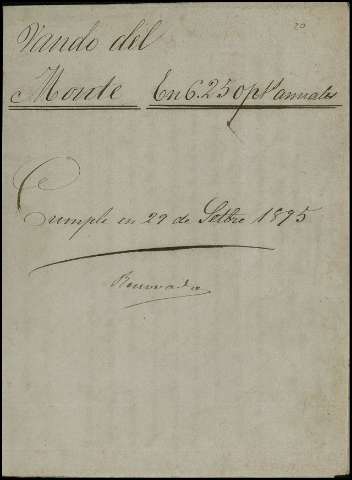 20
Vando del
Monte En 6.250 pts anuales
Cumple en 29 de Setbre 1895
Renovada